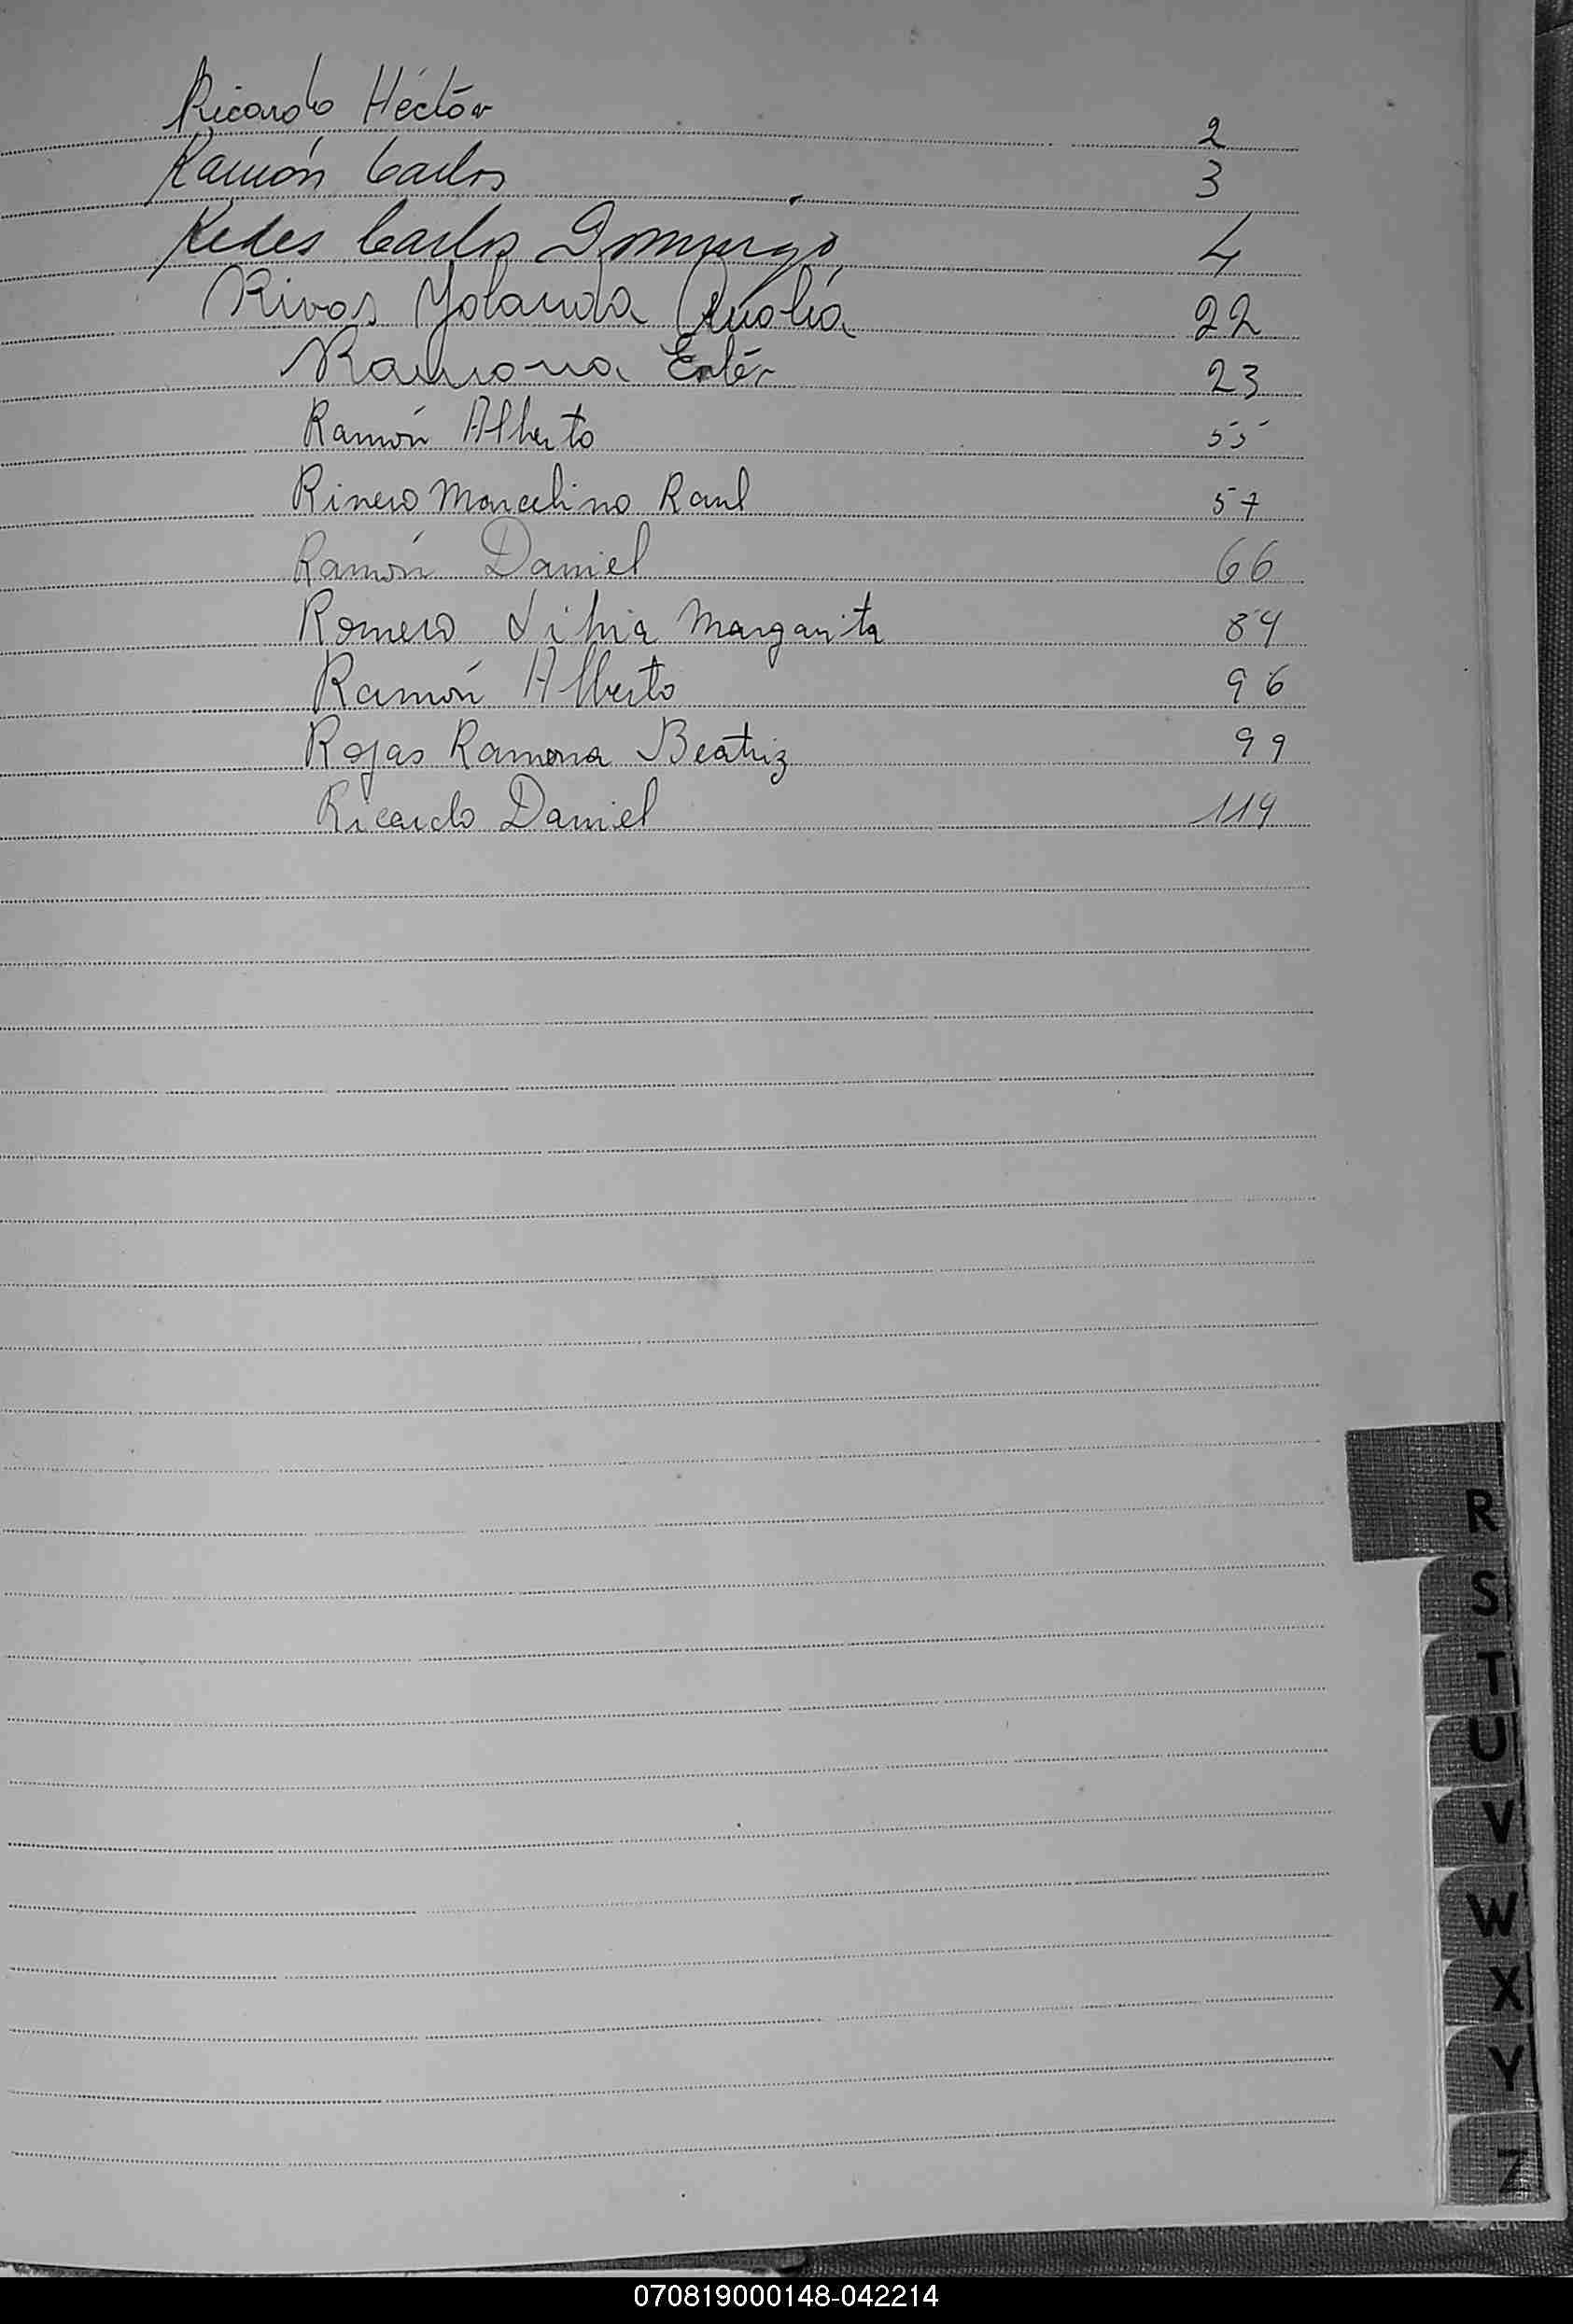 Ricardo Héctor 2
Ramón Carlos 3
Redes Carlos Domingo 4
Rivas Yolanda Analia 22
Ramona Ester 23
Ramón Alberto 55
Rivero Marcelino Raul 57
Ramón Daniel 66
Romero Margarita 84
Ramón Alberto 96
Rojas Ramona Beatriz 99
Ricardo Daniel 119
R
S
T
U
V
W
X
Y
Z
070819000148-042214